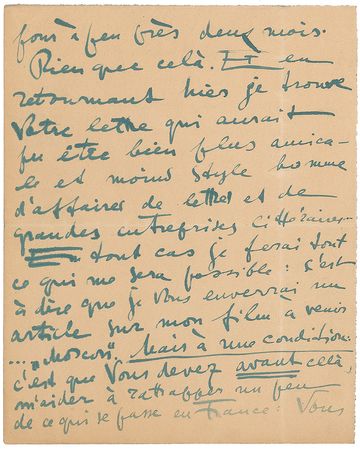 fons à peu près deux mois.
Rien que celà. Et en
retournant hier je trouve
Votre lettre qui aurait
pu être bien plus amica-
le et moins style homme
d'affaires de lettres et de
grandes entreprises littéraires.
En tout cas je ferai tout
ce qui me sera possible: s'est
à dire que je vous enverrai un
article sur mon film a venir
... „Moscou". Mais à une condition:
c'est que Vous devez avant celà,
m'aider à rattrapper un peu
de ce qui se passe en France: Vous